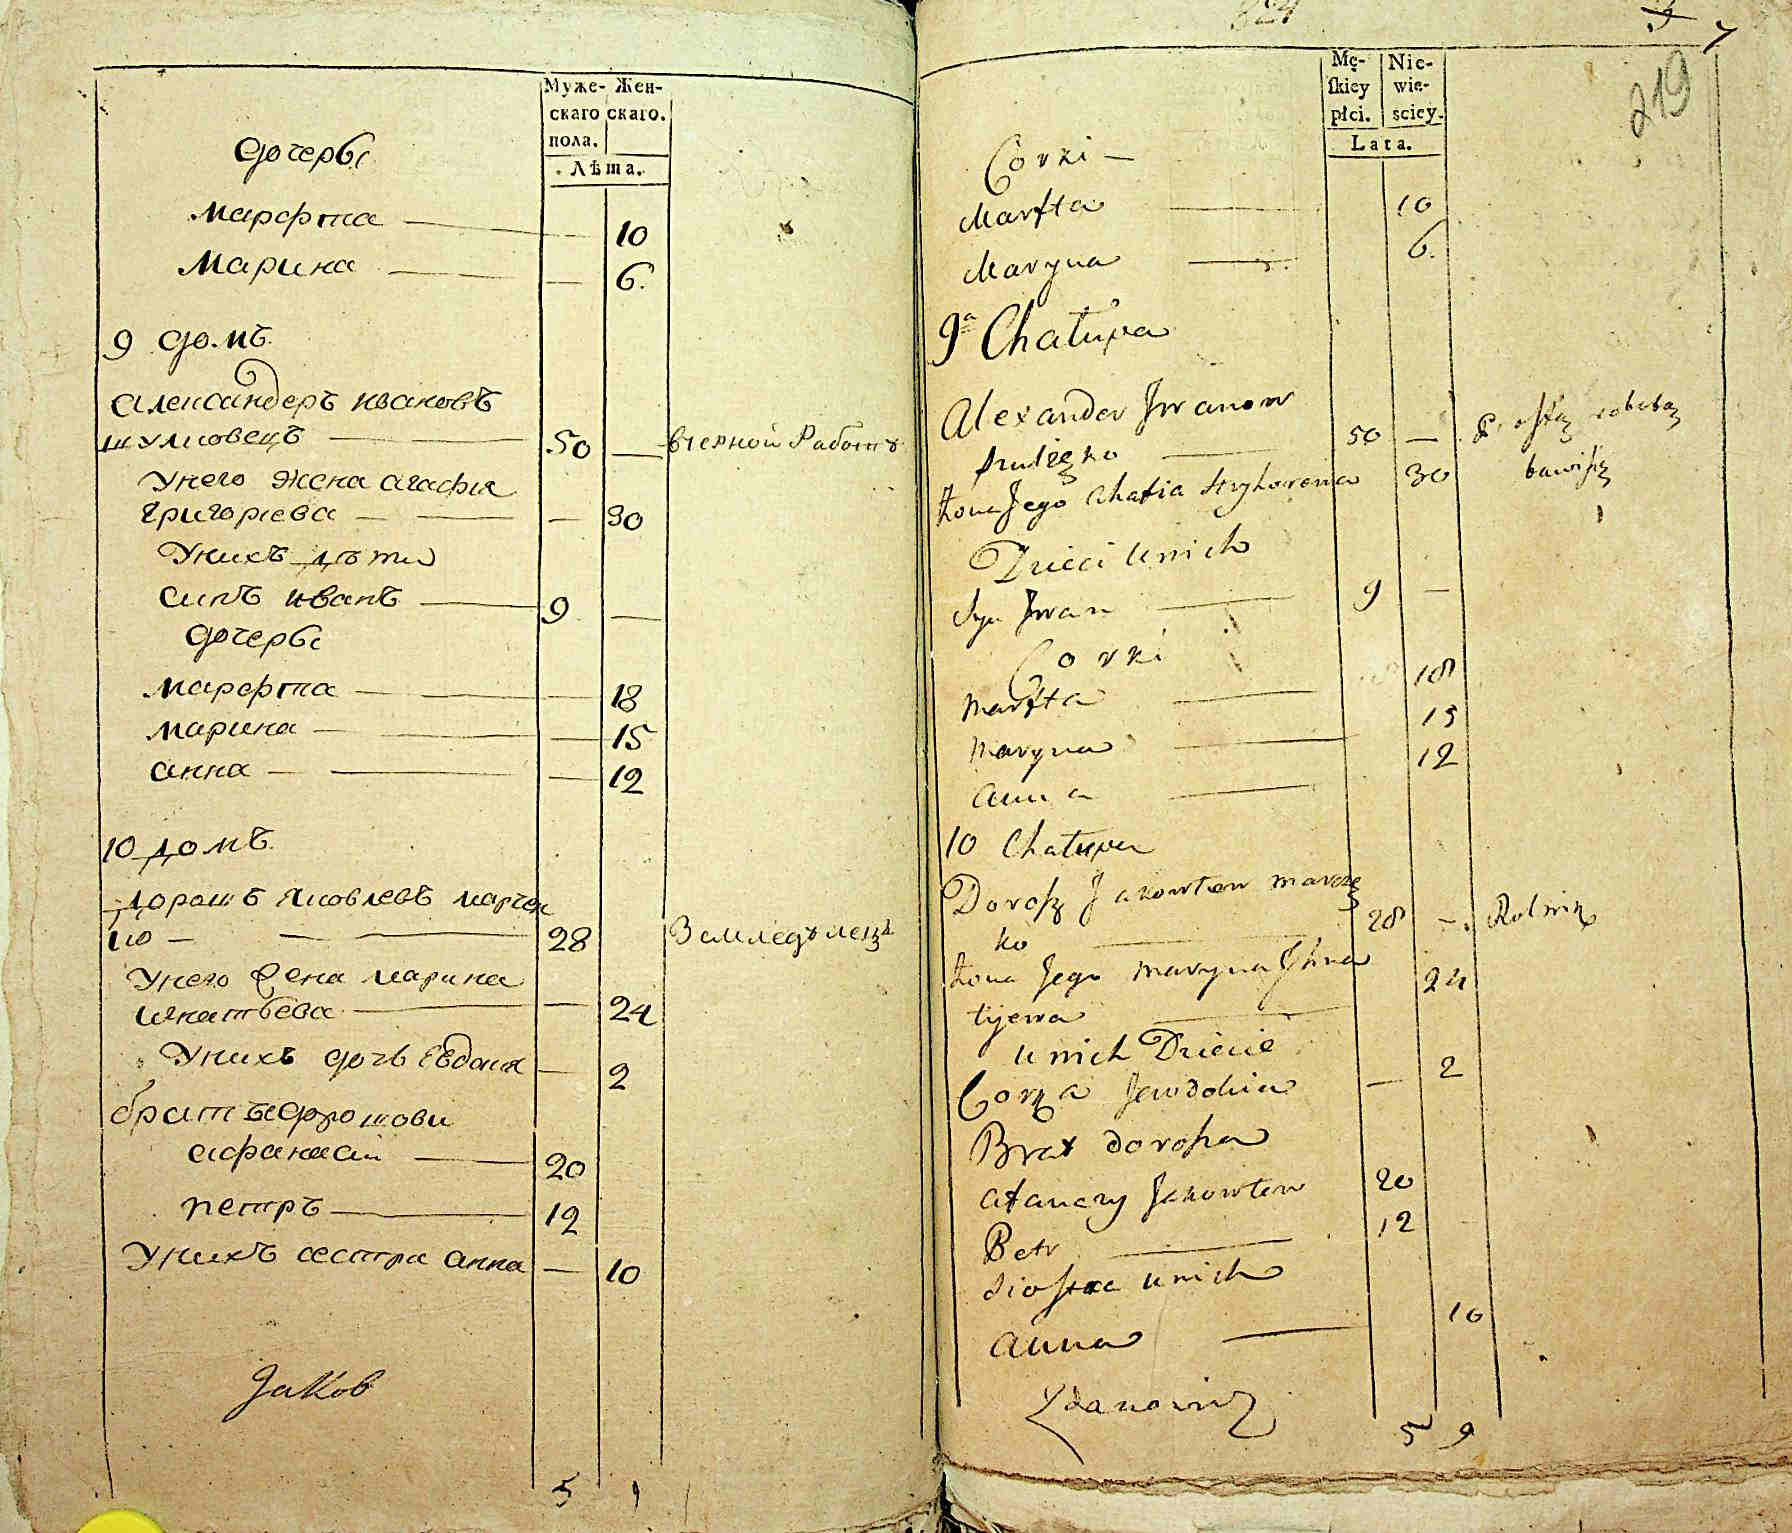 Муже- Жен-
скаго скаго.
пола.
Лѣта.
дочеры
Марфта 10
Марина 6.
9 домъ
Александеръ Ивановъ
50 вчерной Работѣ
Унего жена агафия
Григорева 30
Унихъ дѣти
синъ иванъ 9
дочеры
марфта 18
марина 15
анна 12
10 домъ
дорошъ Яковлевъ марчен
ко 28 Земледѣлецъ
Унего жена марина
игнатьева 24
Унихъ дочь Евдокия 2
братъя дорошови
афанасий 20
петръ 12
Унихъ сестра анна 10
Jakob
5
324
7
219
Mę- Nie-
ſkiey wie-
płci. sciey.
Lata.
Corki
Marfta 10
Maryna 6.
9a Chałupa
Alexander Jwanow
50
Żona Jego Ahafia Hryhorewa 30 bawiſię
Dzieci Unich
Syn Jwan 9
Corki
Marfta 18
Maryna 15
Anna 12
10 Chałupa
Dorofz Jakowlew Marcze
ko 28 Rolnik
Żona Jego Maryna Jhna
tijewa 24
Unich Dziecie
Corka Jewdokia 2
Brat dorofza
Afanazy Jakowlew 20
Petr 12
Sioſtra Unich
Anna 10
Zdanowicz
5 9